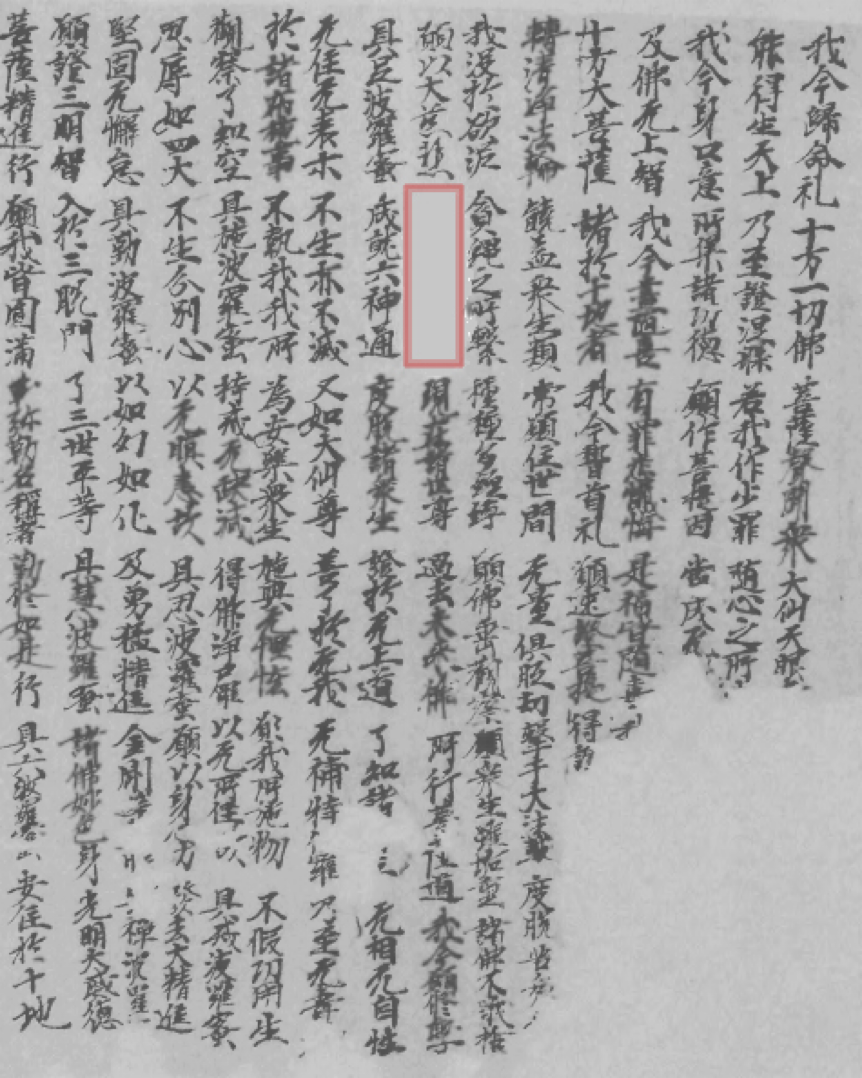 我今歸命礼 十方一切佛 菩薩聲聞衆 大仙天眼
能得生天上 乃至證涅槃 若我作少罪 随心之所
我今身口意 所集諸功德 願作菩提因 當成无
及佛无上智 我今盡随喜 有罪悉懺悔 是福皆随喜
十方大菩薩 諸於十地者 我今稽首礼 願速證菩提 得
轉清淨法輪 饒益衆生類 常願住世間 无量俱胝劫 擊于大法鼓 度脱苦衆
我没於欲泥 貪繩之所繫 種種多纏縛 願佛垂觀察 願衆生雖垢重 諸佛不
願以大慈悲 現在諸世尊 過去未来佛 所行菩提道 我今願修學
具足波羅蜜 成就六神通 度脱諸衆生 證於无上道 了知諸 无相无自性
无住无表示 不生亦不滅 又如大仙尊 善了於无我 无補特 羅 乃至无壽
於諸所施事 不執我我所 為安樂衆生 施與无慳悋 願我所施物 不假功用生
觀察了知空 具施波羅蜜 持戒无缺減 得佛淨尸羅 以无所住 以 具戒波羅蜜
忍辱如四大 不生分別心 以无瞋恚故 具忍波羅蜜 願以身 力 發大精進
堅固无懈怠 具勤波羅蜜 以如幻如化 及勇猛精進 金剛 禪波羅
願證三明智 入於三脱門 了三世平等 具慧波羅蜜 諸佛妙色身 光明大威德
菩薩精進行 願我皆圓滿 弥勒名稱著 勤修如是行 具六波羅 安住於十地